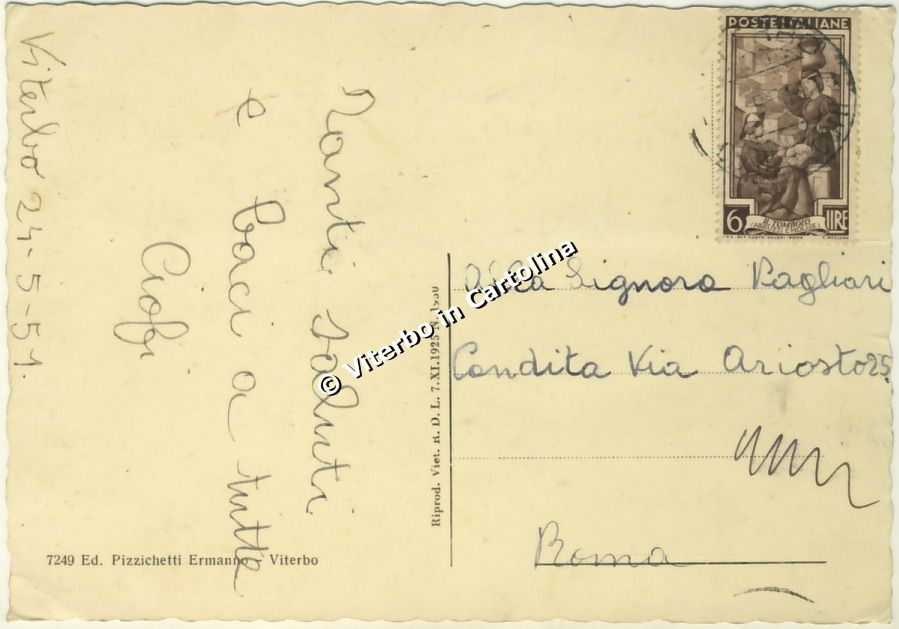 Viterbo 24-5-51.
Tanti saluti
e baci a tutte
POSTE ITALIANE
6 IL TOMBOLO LIRE
Alla Signora Pagliari
Candita Via Ariosto 25
Roma
Riprod. Viet. R. D. L. 7.XI.1925 N. 1950
7249 Ed. Pizzichetti Ermanno - Viterbo
© Viterbo in Cartolina